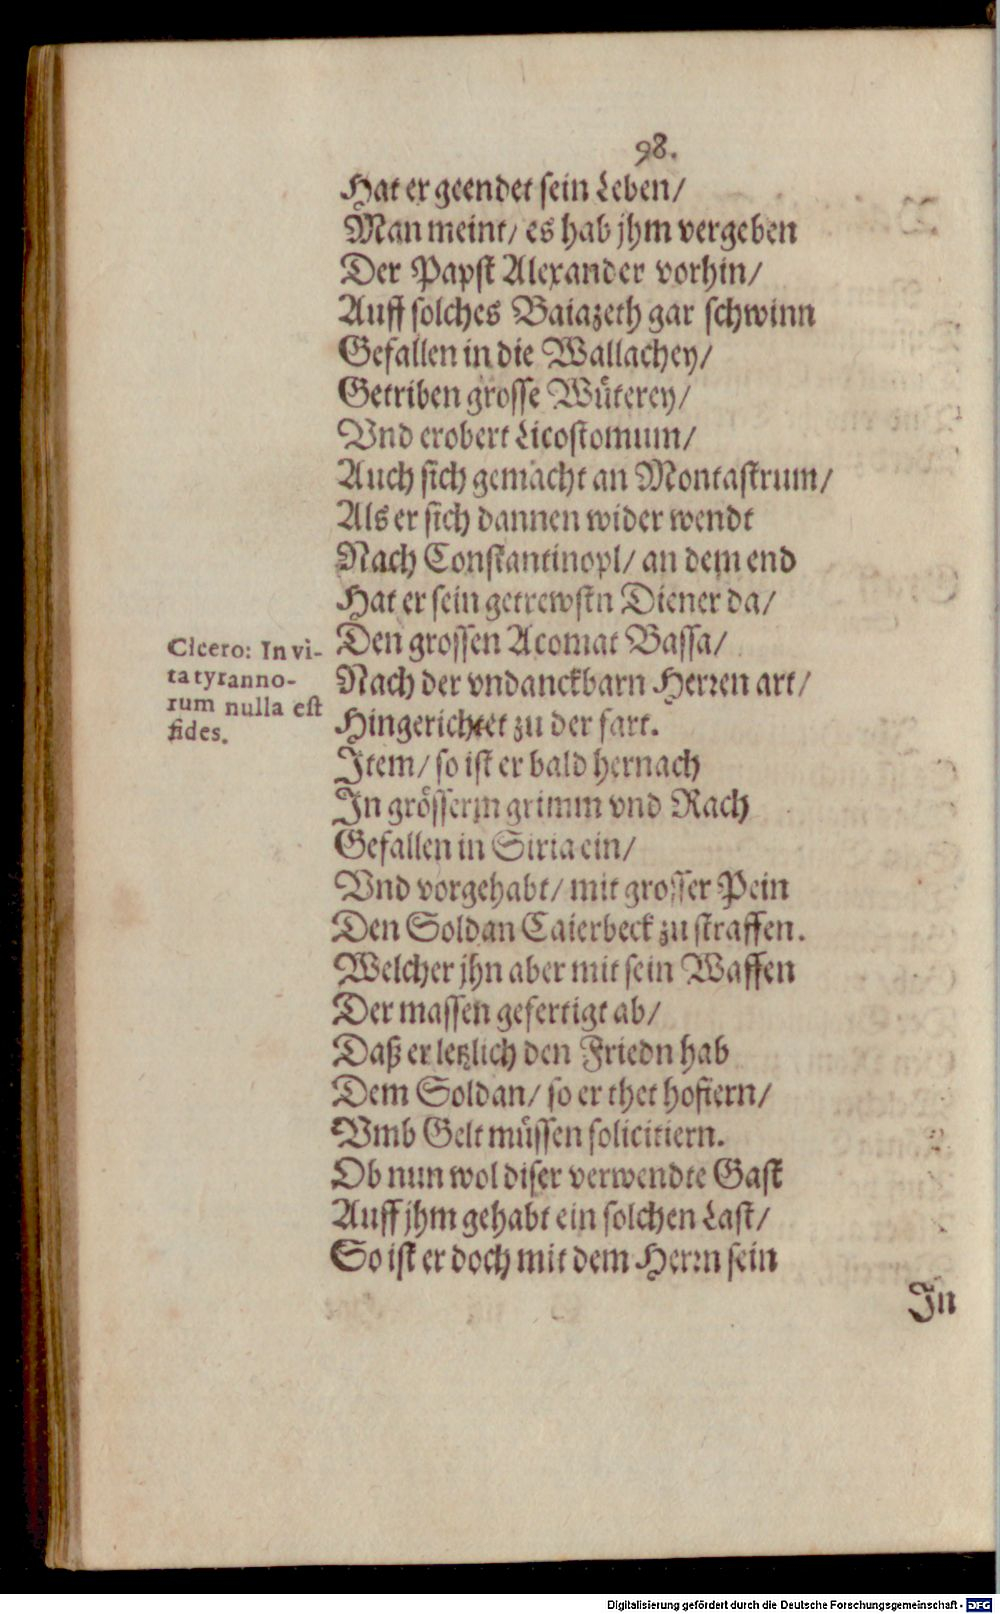 98.
Hat er geendet sein Leben/
Man meint/ es hab jhm vergeben
Der Papst Alexander vorhin/
Auff solches Baiazeth gar schwinn
Gefallen in die Wallachey/
Getriben grosse Wüterey/
Vnd erobert Licostomum/
Auch sich gemacht an Montastrum/
Als er sich dannen wider wendt
Nach Constantinopl/ an dem end
Hat er sein getrewstn Diener da/
Den grossen Acomat Bassa/
Nach der vndanckbarn Herren art/
Hingerichtet zu der fart.
Cicero: In vi-
ta tyranno-
rum nulla est
fides.
Item/ so ist er bald hernach
In grösserm grimm vnd Rach
Gefallen in Siria ein/
Vnd vorgehabt/ mit grosser Pein
Den Soldan Caierbeck zu straffen.
Welcher jhn aber mit sein Waffen
Der massen gefertigt ab/
Daß er letzlich den Friedn hab
Dem Soldan/ so er thet hofiern/
Vmb Gelt müssen solicitiern.
Ob nun wol diser verwendte Gast
Auff jhm gehabt ein solchen Last/
So ist er doch mit dem Herrn sein
In
Digitalisierung gefördert durch die Deutsche Forschungsgemeinschaft - DFG